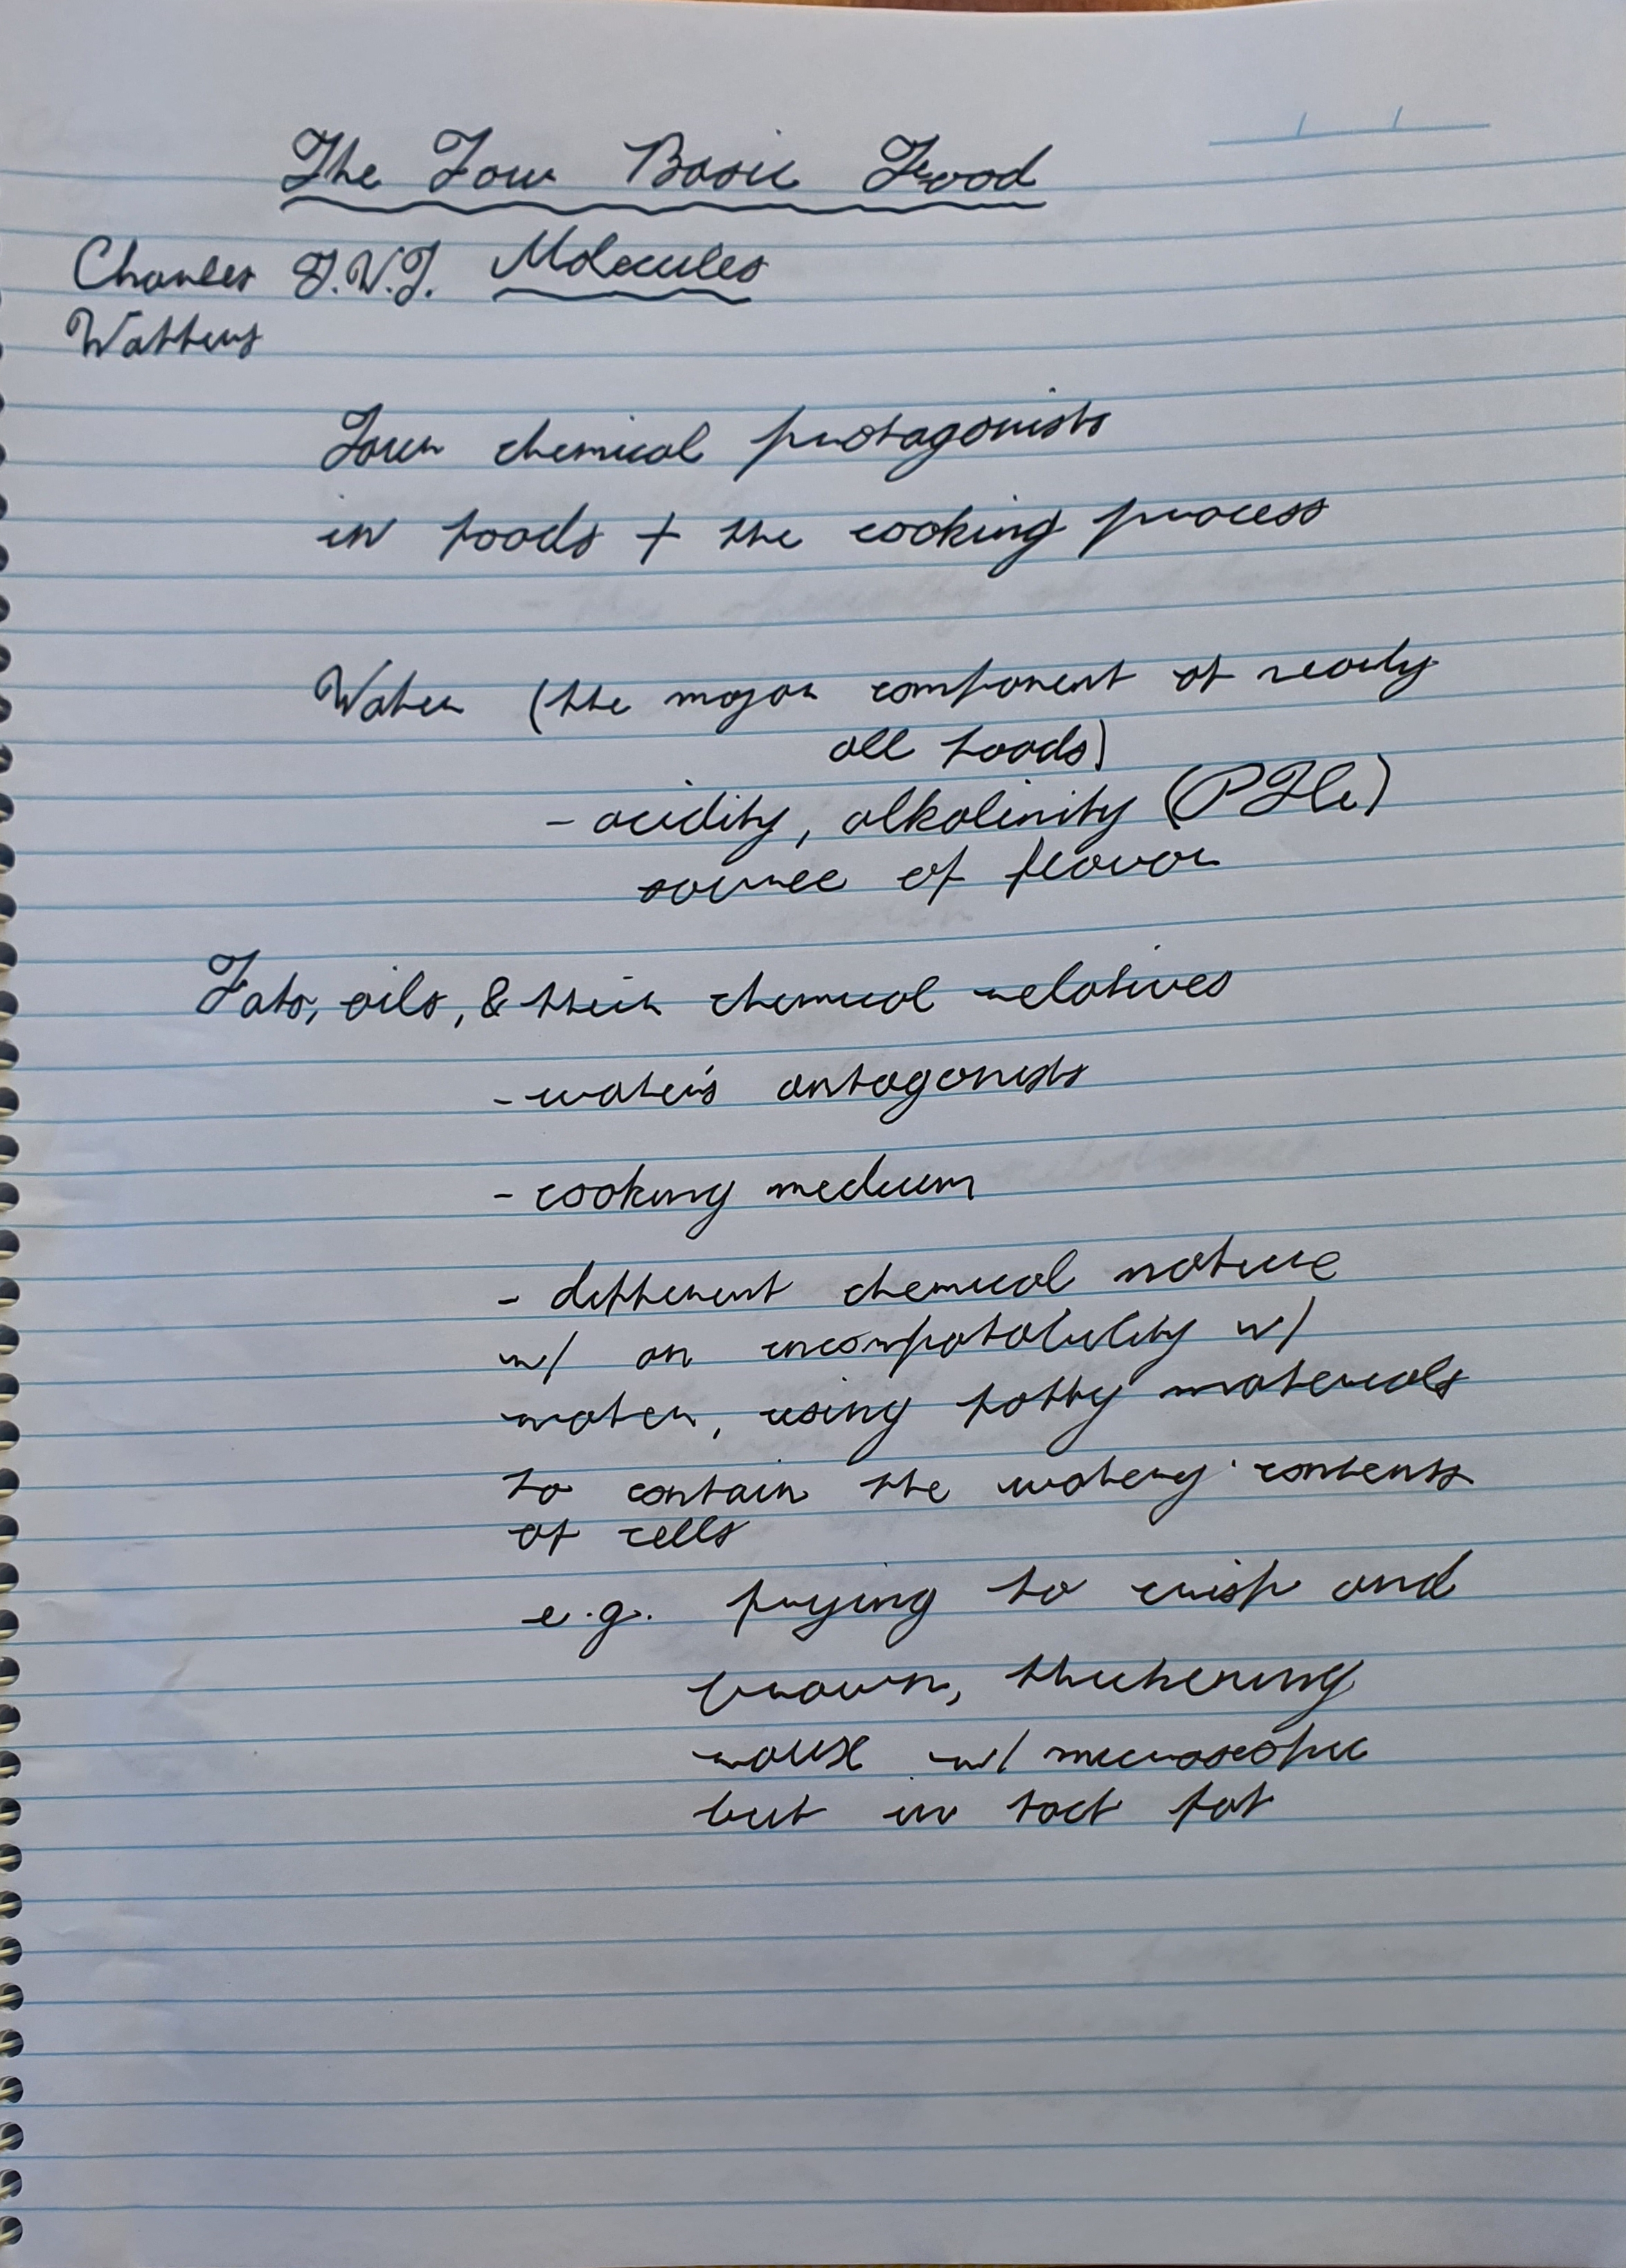 The Four Basic Food
Charles F.W.F. Molecules
Watters
Four chemical protagonists
in foods + the cooking process
Water (the major component of nearly
all foods)
- acidity, alkalinity
source of flavor
Fats, oils, & their chemical relatives
- water's antagonists
- cooking medium
- different chemical nature
w/ an incompatability w/
water, using fatty materials
to contain the watery contents
of cells
e.g. frying to crisp and
brown, thickening
w/ microscopic
but in tact fat